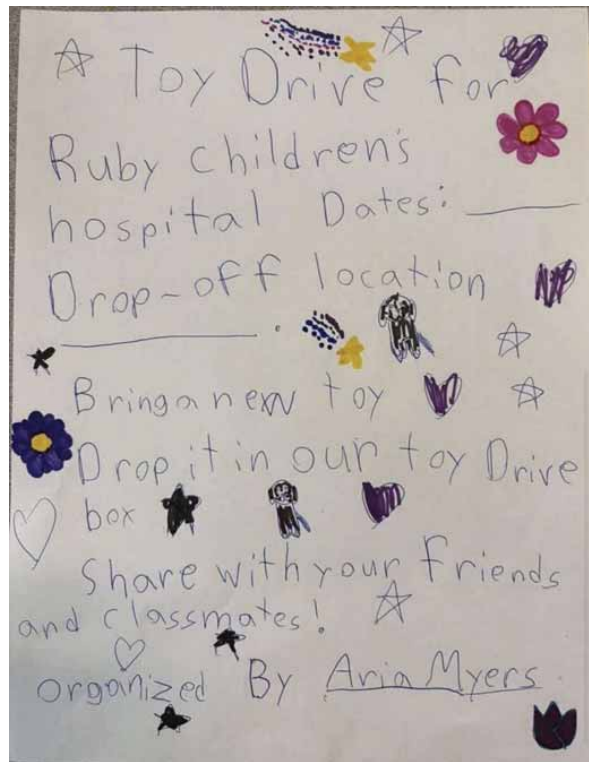 Toy Drive for
Ruby children's
hospital Dates: ________
Drop-off location
____________ .
Bring a new toy
Drop it in our toy Drive
box
Share with your friends
and classmates!
organized By Aria Myers